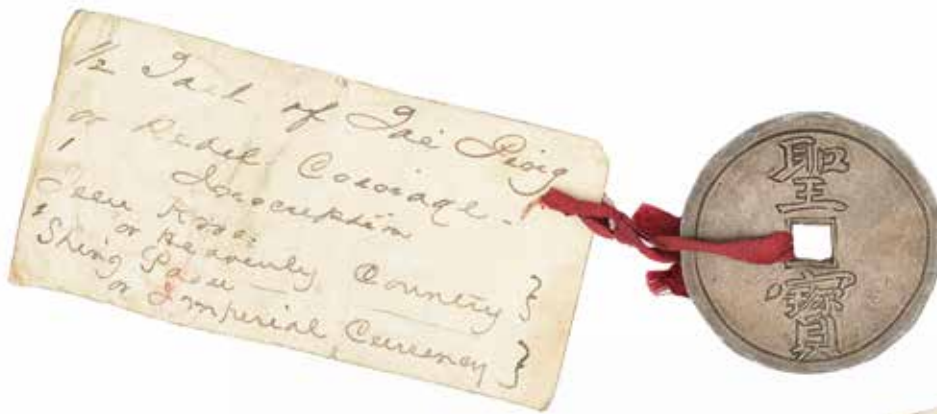 1/2 Tael of Tae Ping
or Rebel Coinage -
Inscription
1 Teen Kwo
or Heavenly Country }
2 Shing Paou
or Imperial Currency }
聖
寳